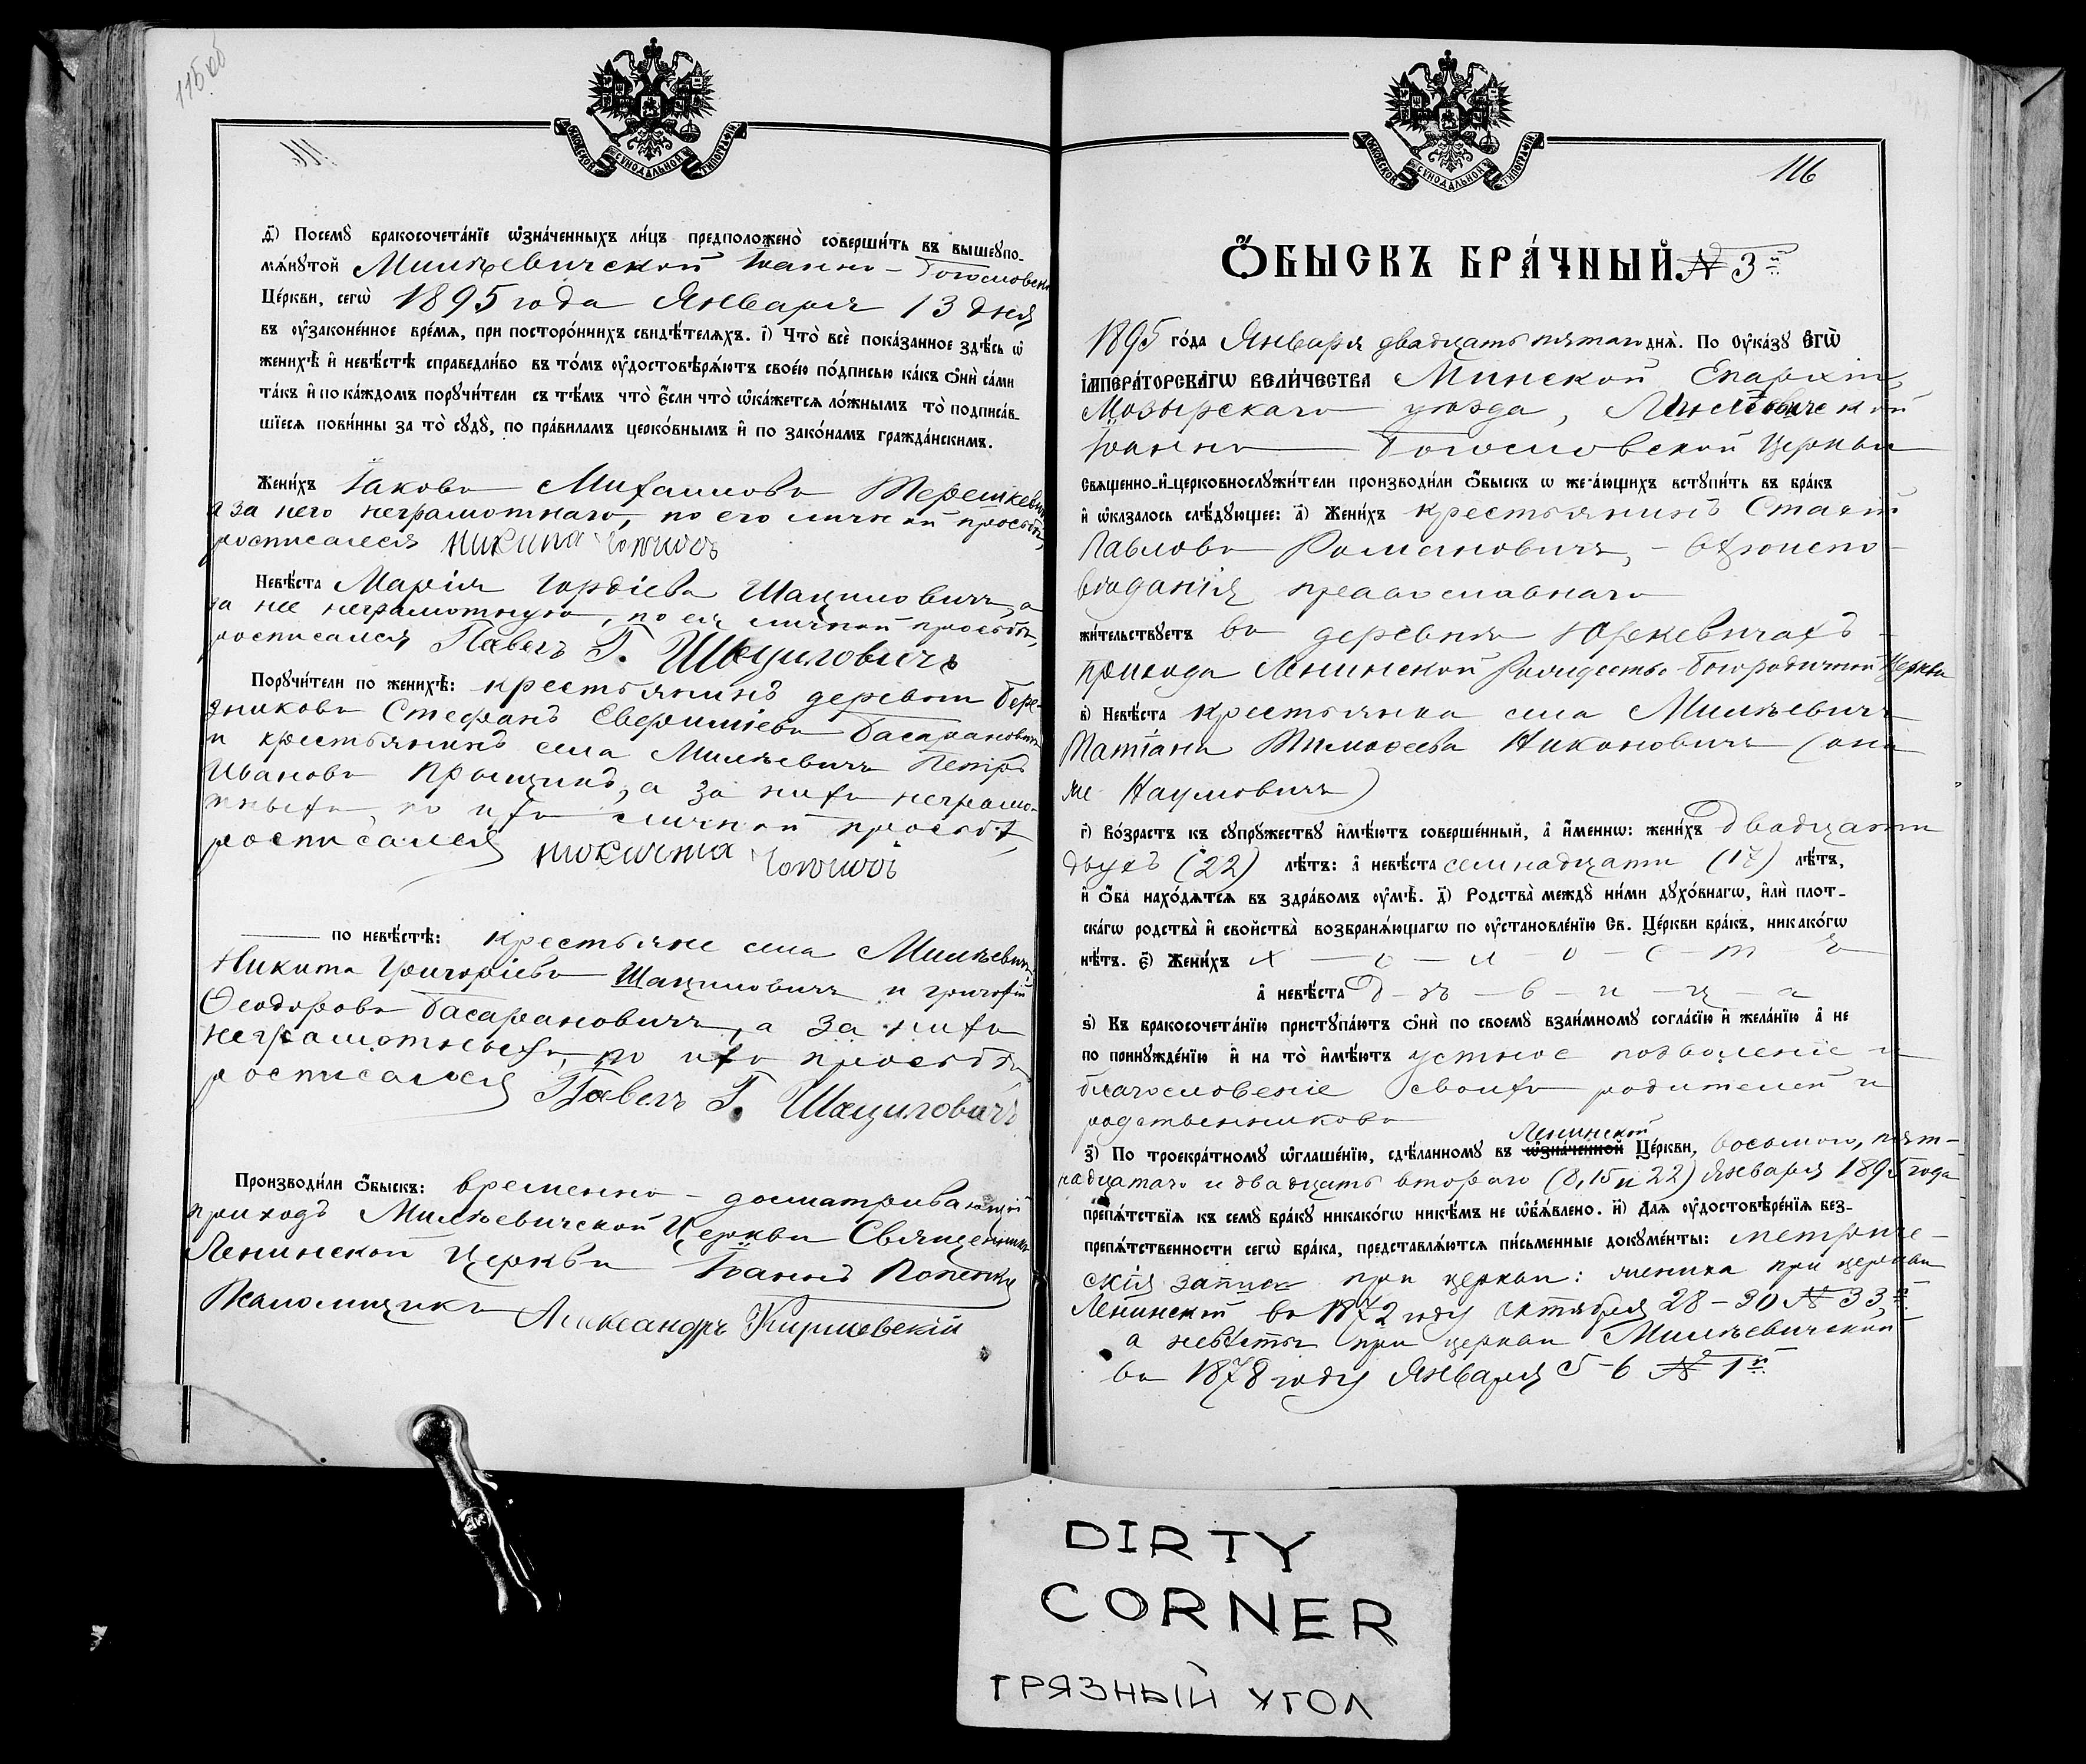 115 об
МОСКОВСКОЙ СѴНОДАЛЬНОЙ ТИПОГРАФІИ
ѳ҃) Посемꙋ бракосочета́нїе ѡ҆зна́ченныхъ ли́цъ предположено̀ соверши́ть въ вышеꙋпо-
мѧ́нꙋтой Милѣевичской Іоанно-Богословской
Це́ркви, сегѡ̀ 1895 года Января 13 дня
въ ᲂу҆зако́ненное вре́мѧ, при посторо́ннихъ свидѣ́телѧхъ. і҃) Что̀ всѐ пока́занное здѣ́сь ѡ҆
женихѣ̀ и҆ невѣ́стѣ справедли́во въ то́мъ ᲂу҆достовѣрѧ́ютъ свое́ю по́дписью ка́къ ѻ҆нѝ са́ми
та́къ и҆ по ка́ждомъ порꙋчи́тели съ тѣ́мъ что̀ є҆́сли что̀ ѡ҆ка́жетсѧ ло́жнымъ то̀ подписа́в-
шїесѧ пови́нны за то̀ сꙋдꙋ̀, по пра́виламъ церко́внымъ и҆ по зако́намъ гражда́нскимъ.
Жени́хъ Іаковъ Михаиловъ Терешкевичъ
а за него неграмотнаго, по его личной просьбѣ,
росписался Никита
Невѣ́ста Марія Гордіева Шацилович, а
за нее неграмотную, по ея личной просьбѣ,
росписался Павелъ Г. Шациловичъ
Порꙋчи́тели по женихѣ̀: крестьянинъ деревни Бере-
зниковъ Стефанъ Евфиміевъ Басарановичъ
и крестьянинъ села Милѣевичъ Петръ
Ивановъ Прощинъ, а за нихъ неграмо-
тныхъ, по ихъ личной просьбѣ,
росписался Никита
по невѣ́стѣ: крестьяне села Милѣевичъ
Никита Григоріевъ Шациловичъ и Григорій
Ѳеодоровъ Басарановичъ, а за нихъ
неграмотныхъ, по ихъ просьбѣ,
росписался Павелъ Г. Шациловичъ
Производи́ли ѻ҆́быскъ: временно-досматривающій
приходъ Милѣевичской Церкви Священникъ
Ленинской Церкви Іоаннъ
Псаломщикъ Александръ Киршевскій
МОСКОВСКОЙ СѴНОДАЛЬНОЙ ТИПОГРАФІИ
116
Ѻ҆́БЫСКЪ БРА́ЧНЫЙ № 3й
1895 го́да Января двадцать пятаго днѧ̀. По ᲂу҆ка́зꙋ Є҆гѡ̀
І҆МПЕРА́ТОРСКАГѠ ВЕЛИ́ЧЕСТВА Минской Епархіи,
Мозырскаго уѣзда, Милѣевичской
Іоанно-Богословской Церкви
Свѧще́нно-и҆-церковнослꙋжи́тели производи́ли ѻ҆́быскъ ѡ҆ жела́ющихъ встꙋпи́ть въ бра́къ
и҆ ѡ҆каза́лось слѣ́дꙋющее: а҃) Жени́хъ крестьянинъ
Павловъ Романовичъ, - вѣроиспо-
вѣданія православнаго
жи́тельствꙋетъ въ деревнѣ Юркевичахъ -
прихода Ленинской Рождество-Богородичной Церкви
в҃) Невѣ́ста крестьянка села Милѣевичъ
Татіана Тимоѳеева Никоновичъ (она
же Наумовичъ)
г҃) Во́зрастъ къ сꙋпрꙋ́жествꙋ и҆мѣ́ютъ соверше́нный, а҆ и҆́меннѡ: жени́хъ двадцати
двухъ (22) лѣ́тъ: а҆ невѣ́ста семнадцати (17) лѣ́тъ,
и҆ ѻ҆́ба нахо́дѧтсѧ въ здра́вомъ ᲂу҆мѣ̀. д҃) Родства̀ междꙋ̀ ни́ми дꙋхо́внагѡ, и҆лѝ плот-
ска́гѡ родства̀ и҆ сво́йства возбранѧ́ющагѡ по ᲂу҆становле́нїю Св. Це́ркви бра́къ, никако́гѡ
нѣ́тъ. є҃) Жени́хъ х - о - л - о - с - т - ъ
а҆ невѣ́ста д - ѣ - в - и - ц - а
ѕ҃) Къ бракосочета́нїю пристꙋпа́ютъ ѻ҆нѝ по своемꙋ̀ взаи́мномꙋ согла́сїю и҆ жела́нїю а҆ не
по принꙋжде́нїю и҆ на то̀ и҆мѣ́ютъ устное позволеніе и
благословеніе своихъ родителей и
родственниковъ
Ленинской
з҃) По троекра́тномꙋ ѡ҆глаше́нїю, сдѣ́ланномꙋ въ ѡ҆зна́ченной Це́ркви, восьмого, пят-
надцатаго и двадцать второго (8, 15 и 22) Января 1895 года
препѧ́тствїѧ къ семꙋ̀ бра́кꙋ никако́гѡ никѣ́мъ не ѡ҆б̾ѧ́влено. и҃) Длѧ ᲂу҆достовѣре́нїѧ без-
препѧ́тственности сегѡ̀ бра́ка, представлѧ́ютсѧ пи́сьменные докꙋме́нты: метриче-
скія записи при церкви: жениха при церкви
Ленинской въ 1872 году октября 28-30 № 33,
а невѣсты при церкви Милѣевичской
въ 1878 году Января 5-6 № 1й
DIRTY
CORNER
ГРЯЗНЫЙ УГОЛ